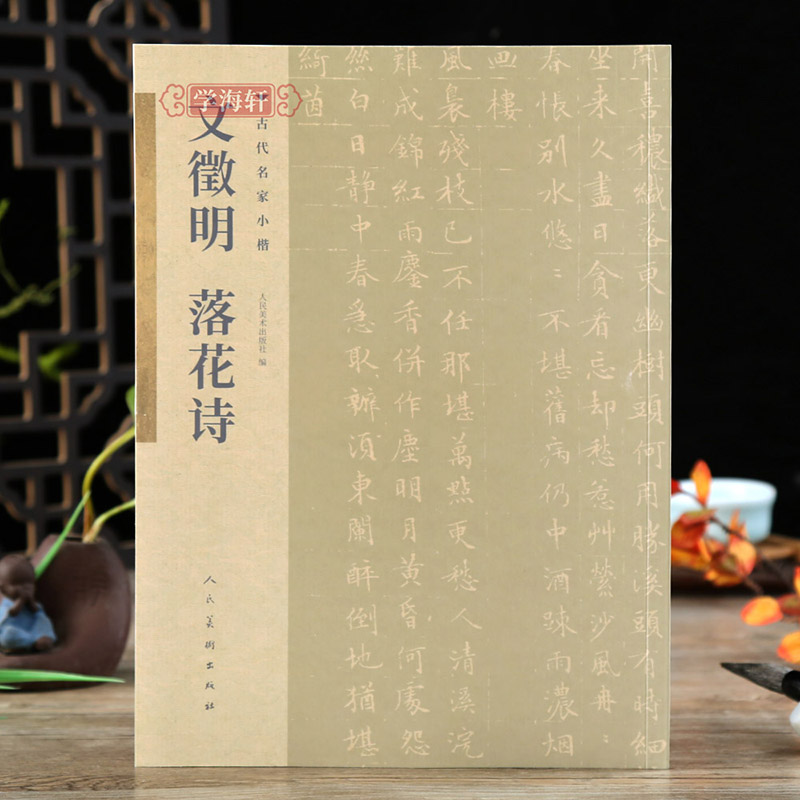 学海轩
文徵明 落花诗
古代名家小楷
人民美术出版社 编
人民美術出版社
開喜穠纖落更幽樹頭何用勝溪頭有時細
坐来久盡日貪看忘却愁惹艸縈沙風冉〻
春悵別水悠〻不堪舊病仍中酒踈雨濃烟
樓
風裊殘枝已不任那堪萬點更愁人清溪浣
難成錦紅雨鏖香併作塵明月黃昏何處怨
然白日靜中春急取辦須東闌醉倒地猶堪
綺茵